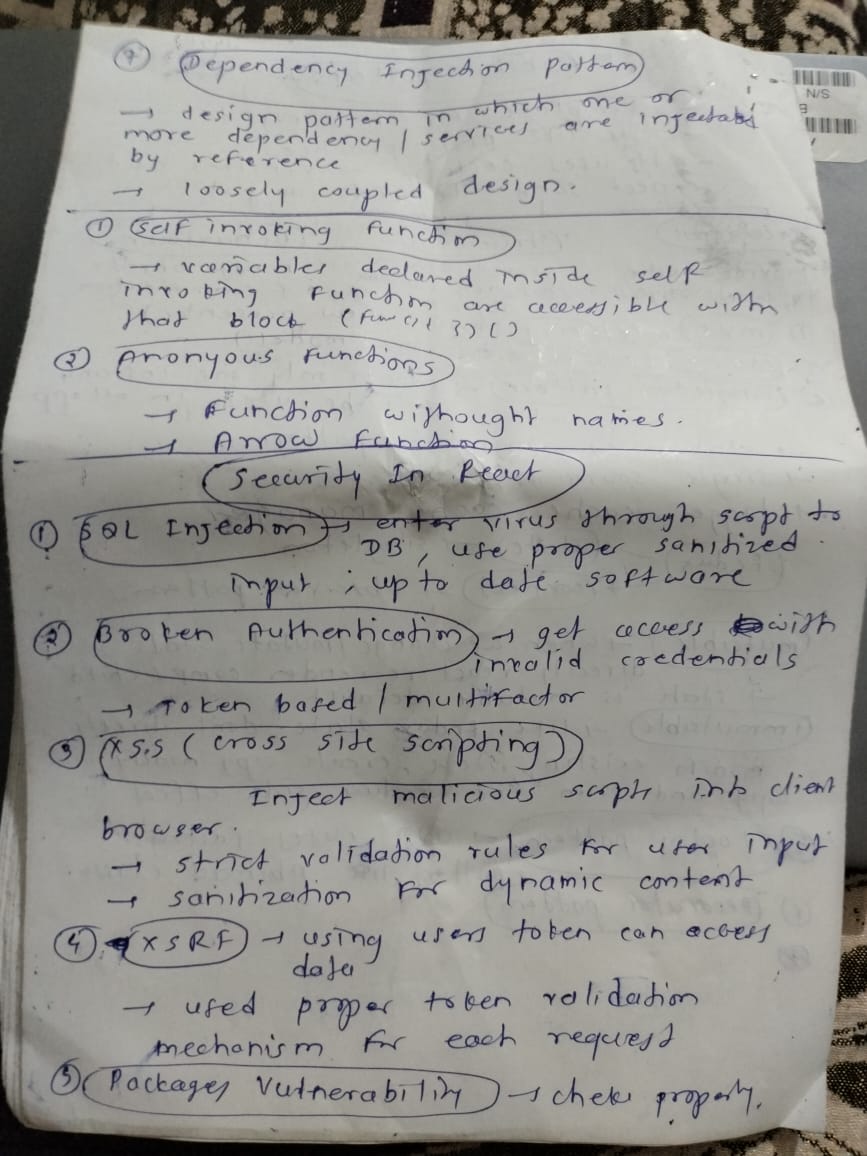 ⑦ Dependency Injection Pattern
→ design pattern in which one or
more dependency / services are injected
by reference
→ loosely coupled design.
N/S
① Self invoking function
→ variables declared inside self
invoking function are accessible within
that block (func() { })()
② Anonyous functions
→ Function withought names.
→ Arrow function
Security In React
① SQL Injection → enter virus through script to
DB, use proper sanitized
input ; up to date software
② Broken Authentication → get access with
invalid credentials
→ Token based / multifactor
③ XSS (cross site scripting)
Inject malicious scripts into client
browser.
→ strict validation rules for user input
→ sanitization for dynamic content
④ XSRF → using users token can access
data
→ used proper token validation
mechanism for each request
⑤ Packages Vulnerability → check properly.